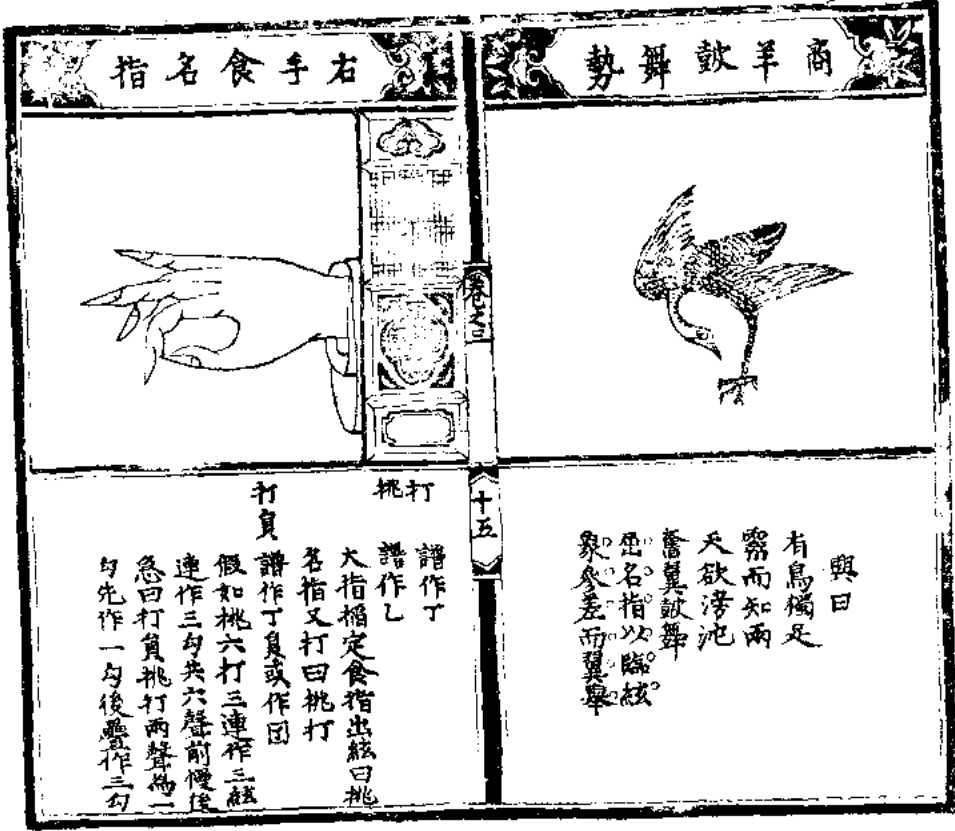 商羊鼓舞勢
興曰
有鳥獨足
霧而知雨
天欲滂沱
奮翼鼓舞
屈名指以臨絃
象參差而翼舉
卷之二
十五
右手食名指
打 譜作丁
挑 譜作乚
大指捎定食指出絃曰挑
名指又打曰挑打
打員 譜作丁員或作囸
假如挑六打三連作三絃
連作三勾共六聲前慢後
急曰打員挑打兩聲為一
勾先作一勾後疊作三勾